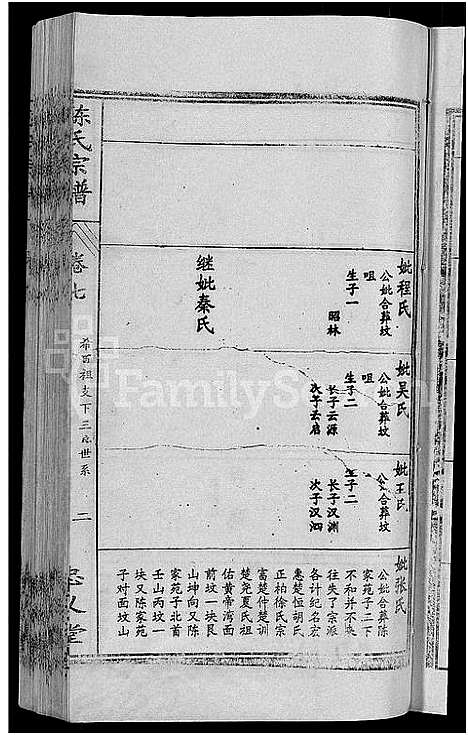 妣程氏
公妣合葬坟
咀
生子一
昭林
继妣秦氏
妣吴氏
公妣合葬坟
咀
生子二
长子云源
次子云启
妣王氏
公妣合葬坟
生子二
长子汉渊
次子汉泗
妣张氏
公妣合葬陈
家苑子二下
不和并不来
往失了宗派
各计纪名宏
惠楚恒胡氏
正柏徐氏宗
富楚仲楚训
楚尧夏氏祖
佑黄帝湾面
前坟一块艮
山坤向又陈
家苑子北首
壬山丙坟一
块又陈家苑
子对面坟山
陈氏宗谱
卷七
希百祖支下三房世系
二
忠义堂
FamilySearch